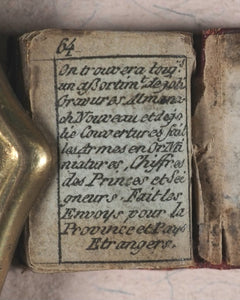 64
On trouvera toujs.
un assortimt. de joli
Gravures, Almana
ch Nouveau et de jo
lie Couvertures, fait
les Armes en Or, Mi
niatures, Chiffres
des Princes et Sei
gneurs. Fait les
Envoys pour la
Province et Pays
Etrangers.